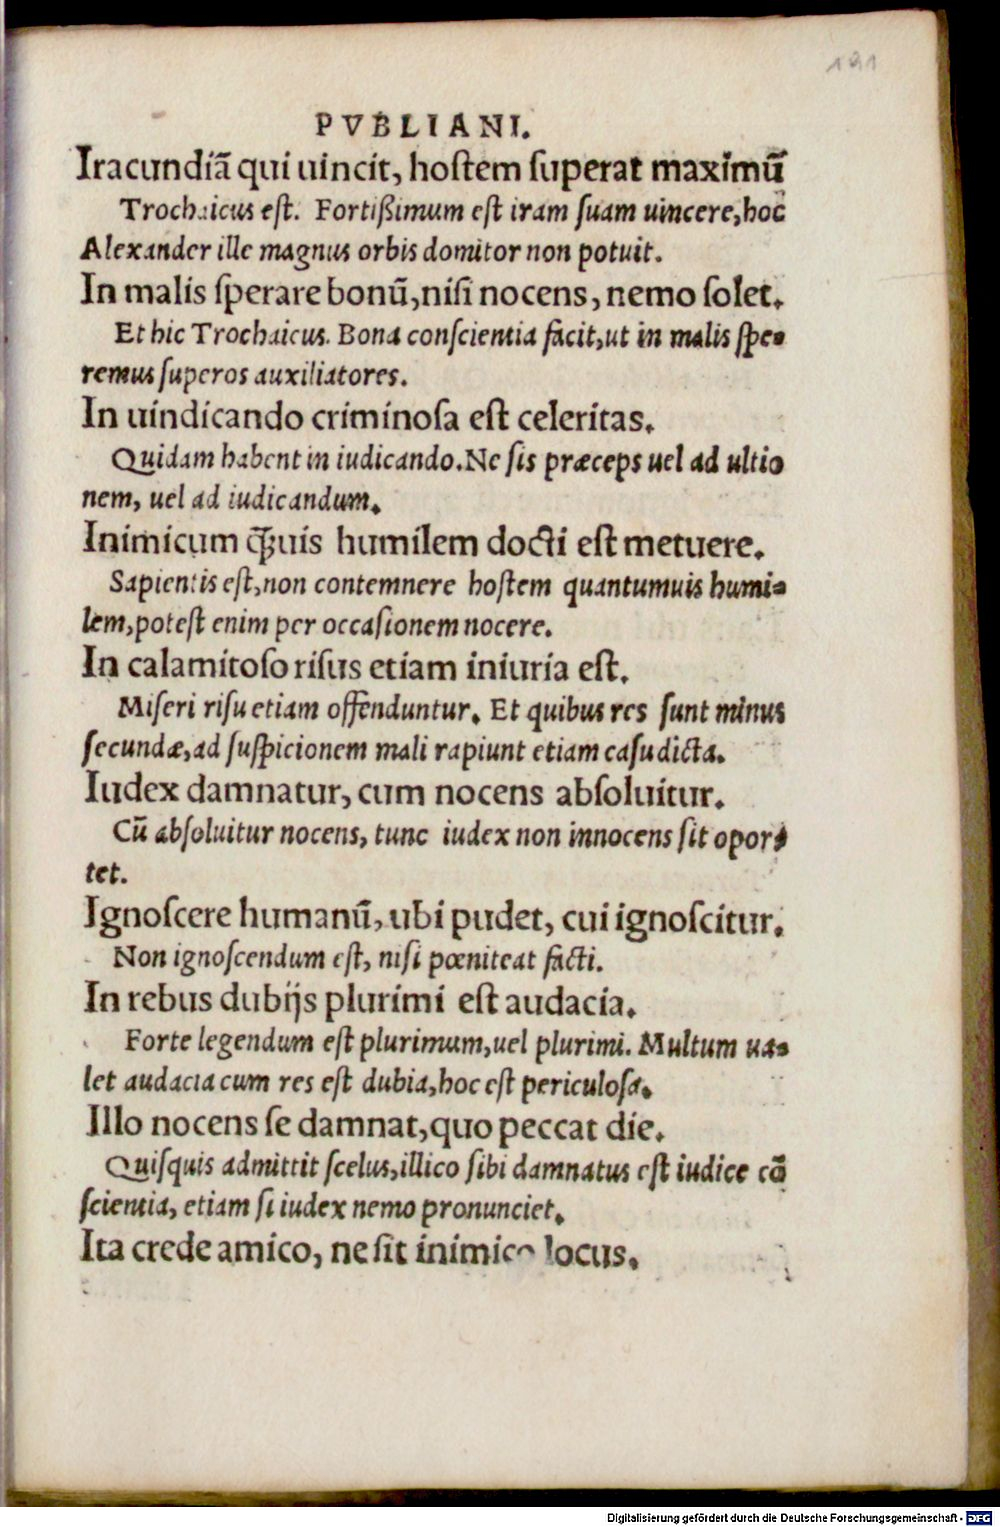 191
PVBLIANI.
Iracundiā qui uincit, hostem superat maximū
Trochaicus est. Fortißimum est iram suam uincere, hoc
Alexander ille magnus orbis domitor non potuit.
In malis sperare bonū, nisi nocens, nemo solet.
Et hic Trochaicus. Bona conscientia facit, ut in malis spe-
remus superos auxiliatores.
In uindicando criminosa est celeritas.
Quidam habent in iudicando. Ne sis præceps uel ad ultio
nem, uel ad iudicandum.
Inimicum q̄uis humilem docti est metuere.
Sapientis est, non contemnere hostem quantumuis humi-
lem, potest enim per occasionem nocere.
In calamitoso risus etiam iniuria est.
Miseri risu etiam offenduntur. Et quibus res sunt minus
secundæ, ad suspicionem mali rapiunt etiam casu dicta.
Iudex damnatur, cum nocens absoluitur.
Cū absoluitur nocens, tunc iudex non innocens sit opor-
tet.
Ignoscere humanū, ubi pudet, cui ignoscitur.
Non ignoscendum est, nisi pœniteat facti.
In rebus dubijs plurimi est audacia.
Forte legendum est plurimum, uel plurimi. Multum ua-
let audacia cum res est dubia, hoc est periculosa.
Illo nocens se damnat, quo peccat die.
Quisquis admittit scelus, illico sibi damnatus est iudice cō
scientia, etiam si iudex nemo pronunciet.
Ita crede amico, ne sit inimico locus.
Digitalisierung gefördert durch die Deutsche Forschungsgemeinschaft - DFG